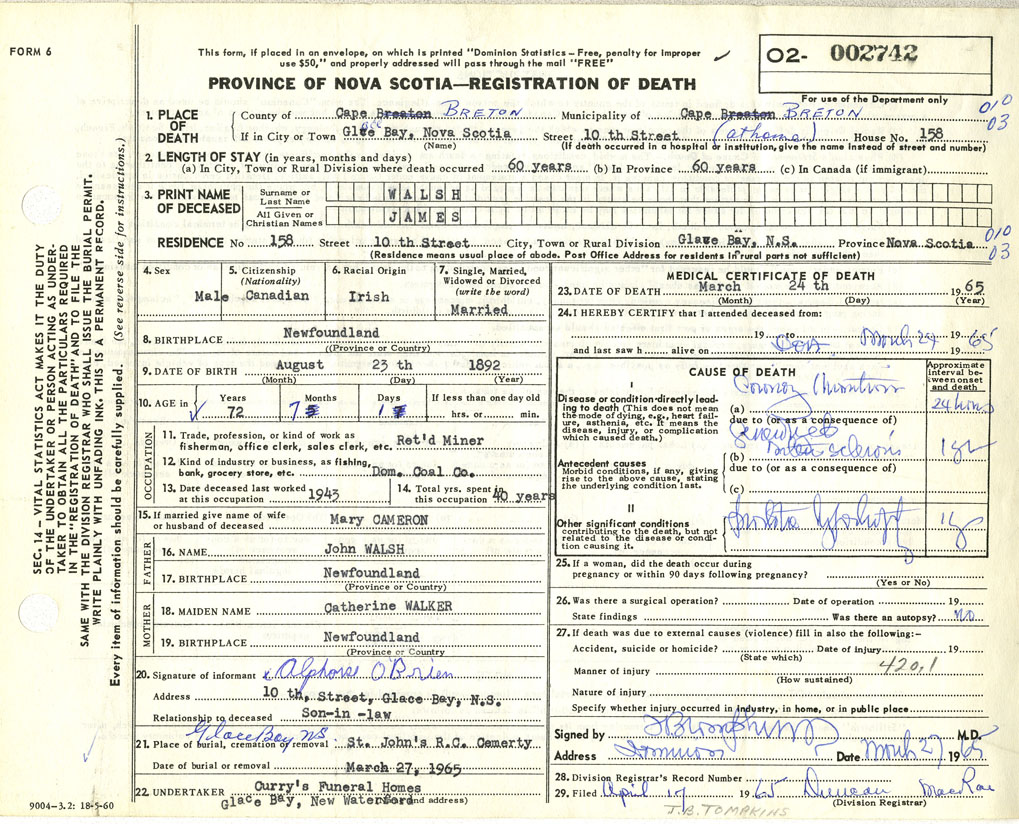 FORM 6
This form, if placed in an envelope, on which is printed "Dominion Statistics – Free, penalty for improper
use $50," and properly addressed will pass through the mail "FREE"
O2- 002742
PROVINCE OF NOVA SCOTIA—REGISTRATION OF DEATH
For use of the Department only
1. PLACE OF DEATH
County of Cape Breaton BRETON Municipality of Cape Breaton BRETON 010
If in City or Town Glace Bay, Nova Scotia Street 10 th Street (at home) House No. 158 03
(Name) (If death occurred in a hospital or institution, give the name instead of street and number)
2. LENGTH OF STAY (in years, months and days)
(a) In City, Town or Rural Division where death occurred 60 years (b) In Province 60 years (c) In Canada (if immigrant)
3. PRINT NAME OF DECEASED
Surname or Last Name WALSH
All Given or Christian Names JAMES
RESIDENCE No 158 Street 10 th Street City, Town or Rural Division Glace Bay, N.S. Province Nova Scotia 010
(Residence means usual place of abode. Post Office Address for residents in rural parts not sufficient) 03
4. Sex Male
5. Citizenship (Nationality) Canadian
6. Racial Origin Irish
7. Single, Married, Widowed or Divorced (write the word) Married
8. BIRTHPLACE Newfoundland
((Province or Country)
9. DATE OF BIRTH August 23 th 1892
(Month) (Day) (Year)
10. AGE in Years Months Days If less than one day old
72 7 1 hrs. or min.
OCCUPATION
11. Trade, profession, or kind of work as
fisherman, office clerk, sales clerk, etc. Ret'd Miner
12. Kind of industry or business, as fishing,
bank, grocery store, etc. Dom. Coal Co.
13. Date deceased last worked at this occupation 1943
14. Total yrs. spent in this occupation 40 years
15. If married give name of wife
or husband of deceased Mary CAMERON
FATHER
16. NAME John WALSH
17. BIRTHPLACE Newfoundland
(Province or Country)
MOTHER
18. MAIDEN NAME Catherine WALKER
19. BIRTHPLACE Newfoundland
(Province or Country
20. Signature of informant Alphonse O'Brien
Address 10 th, Street, Glace Bay, N.S.
Relationship to deceased Son-in -law
Glace Bay NS
21. Place of burial, cremation or removal St. John's R.C. Cemerty
Date of burial or removal March 27, 1965
22. UNDERTAKER Curry's Funeral Homes
Glace Bay, New Waterford and address)
9004-3.2: 18-5-60
MEDICAL CERTIFICATE OF DEATH
23. DATE OF DEATH March 24 th 1965
(Month) (Day) (Year)
24. I HEREBY CERTIFY that I attended deceased from:
19 to March 24 1965
and last saw h alive on 19
CAUSE OF DEATH
Approximate interval between onset and death
I
Disease or condition directly leading to death (This does not mean the mode of dying, e.g., heart failure, asthenia, etc. It means the disease, injury, or complication which caused death.)
(a) Coronary Thrombosis 24 hours
due to (or as a consequence of)
Generalized
(b) Arteriosclerosis
due to (or as a consequence of)
Antecedent causes
Morbid conditions, if any, giving rise to the above cause, stating the underlying condition last.
(c)
II
Other significant conditions
contributing to the death, but not related to the disease or condition causing it.
25. If a woman, did the death occur during
pregnancy or within 90 days following pregnancy?
(Yes or No)
26. Was there a surgical operation? Date of operation 19
State findings Was there an autopsy? No
27. If death was due to external causes (violence) fill in also the following:–
Accident, suicide or homicide? Date of injury 19
(State which)
Manner of injury 420.1
(How sustained)
Nature of injury
Specify whether injury occurred in industry, in home, or in public place
Signed by M.D.
Address Dominion Date March 27 1965
28. Division Registrar's Record Number
29. Filed April 17 1965 Duncan MacRae
(Division Registrar)
J.B. TOMPKINS
SEC. 14 – VITAL STATISTICS ACT MAKES IT THE DUTY
OF THE UNDERTAKER OR PERSON ACTING AS UNDER-
TAKER TO OBTAIN ALL THE PARTICULARS REQUIRED
IN THE "REGISTRATION OF DEATH" AND TO FILE THE
SAME WITH THE DIVISION REGISTRAR WHO SHALL ISSUE THE BURIAL PERMIT.
WRITE PLAINLY WITH UNFADING INK. THIS IS A PERMANENT RECORD.
Every item of information should be carefully supplied. (See reverse side for instructions.)